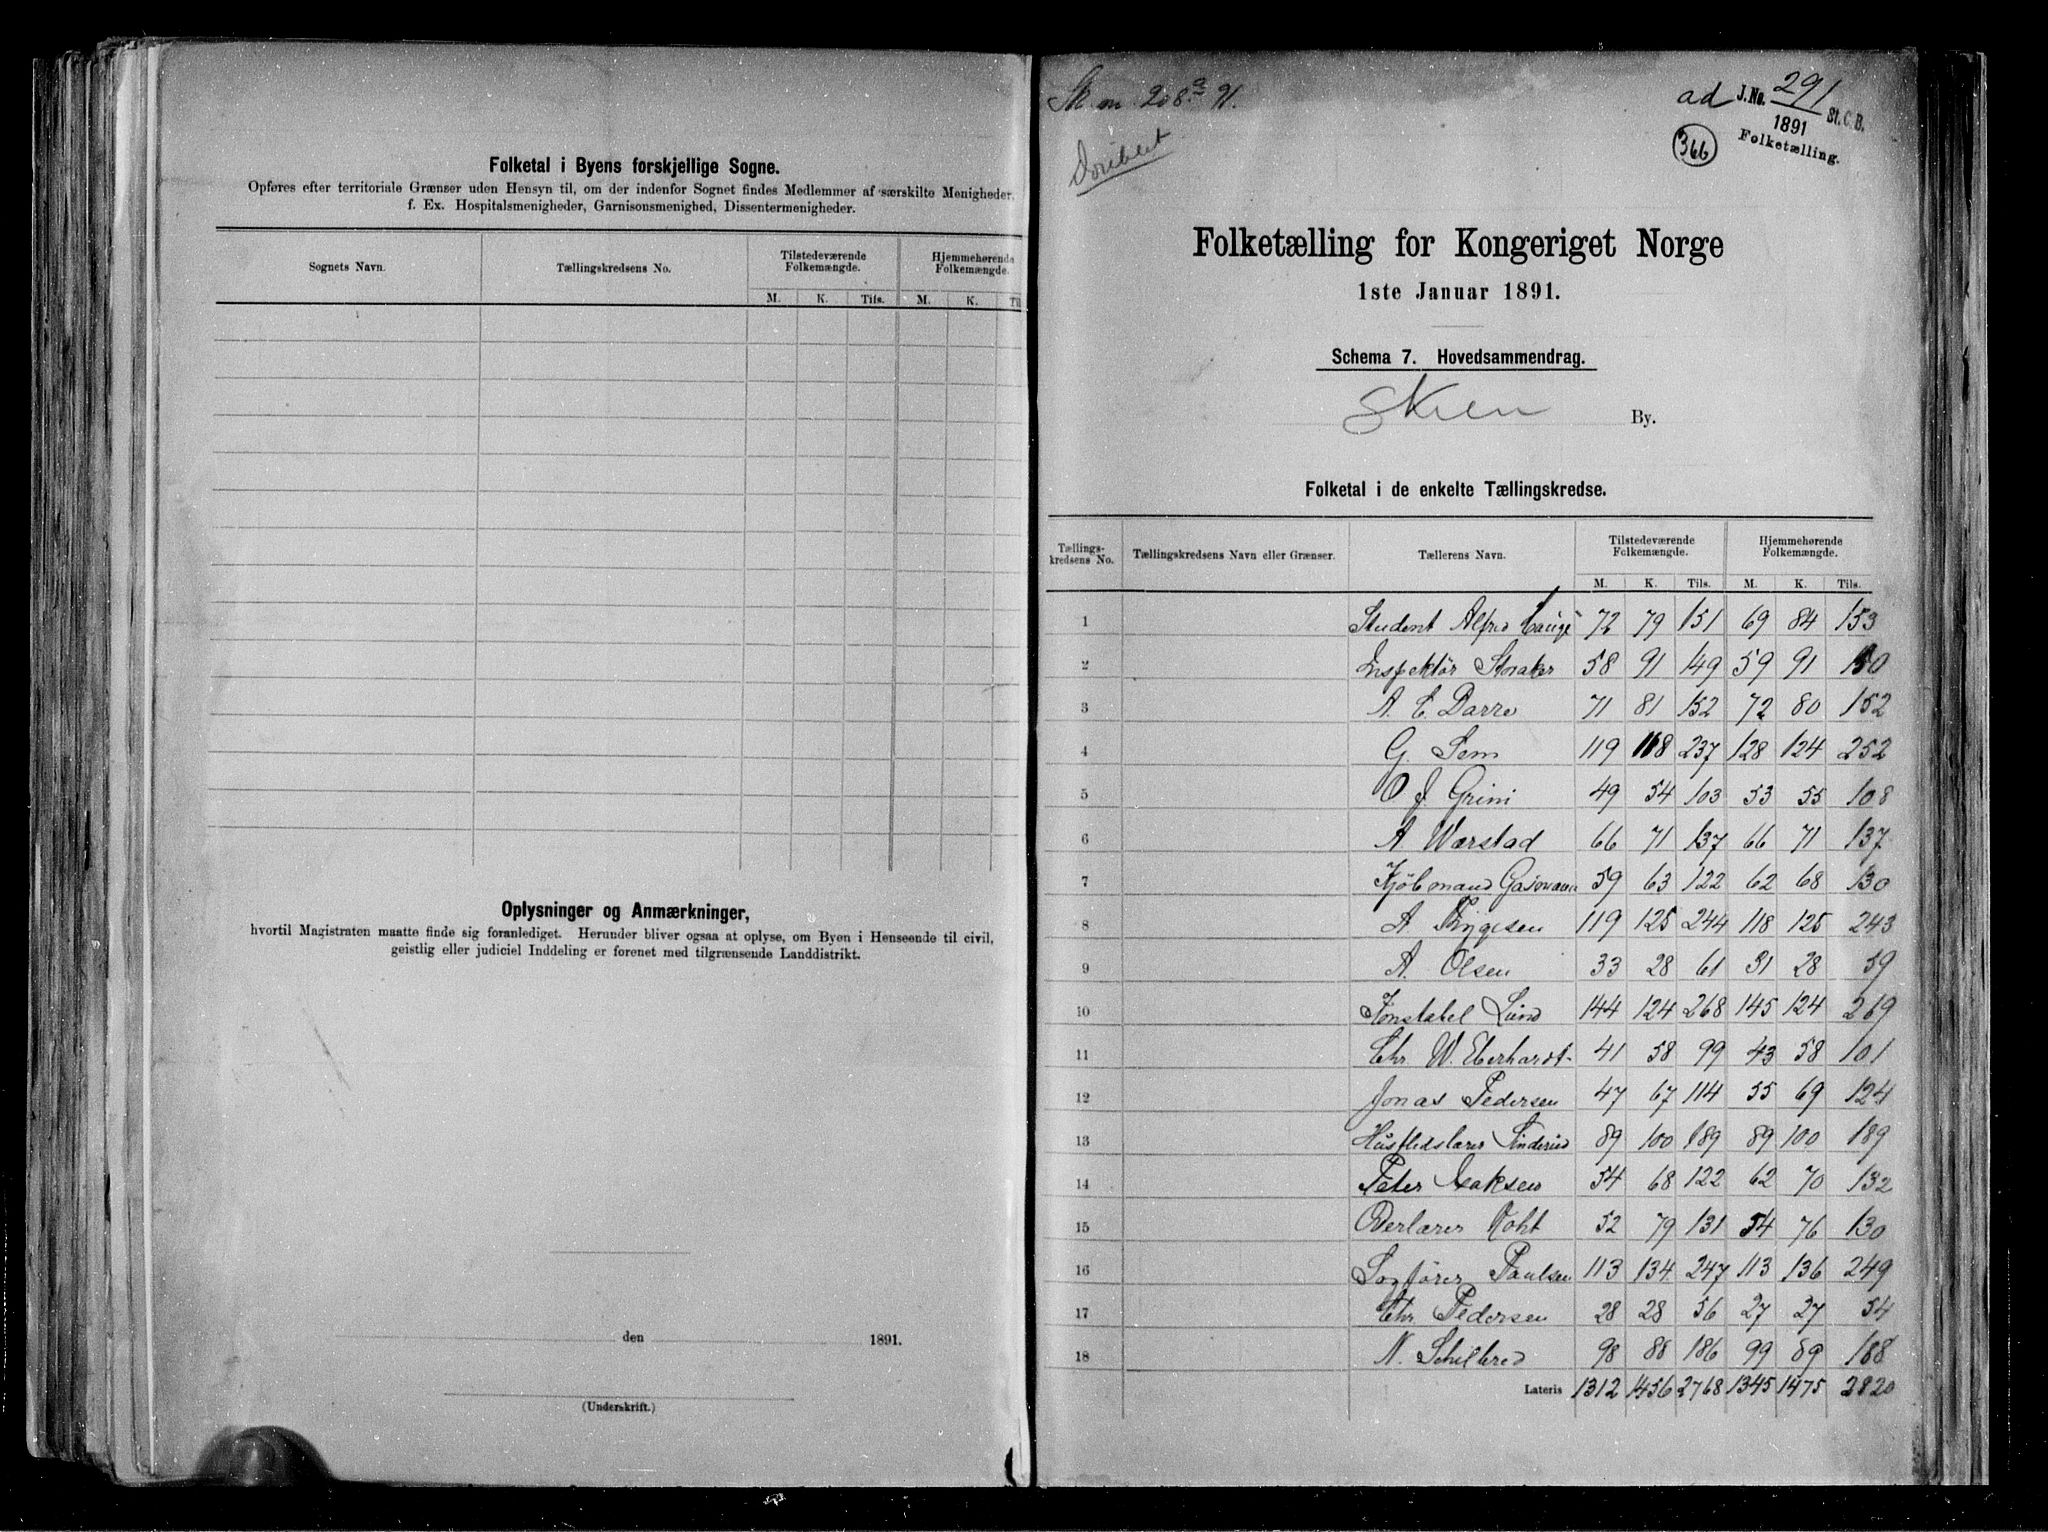 Folketal i Byens forskjellige Sogne.
Opføres efter territoriale Grænser uden Hensyn til, om der indenfor Sognet findes Medlemmer af særskilte Menigheder,
f. Ex. Hospitalsmenigheder, Garnisonsmenighed, Dissentermenigheder.
Sognets Navn. Tællingskredsens No. Tilstedeværende Folkemængde. Hjemmehørende Folkemængde.
M. K. Tils. M. K. Til
Oplysninger og Anmærkninger,
hvortil Magistraten maatte finde sig foranlediget. Herunder bliver ogsaa at oplyse, om Byen i Henseende til civil,
geistlig eller judiciel Inddeling er forenet med tilgrænsende Landdistrikt.
den 1891.
(Underskrift.)
208 91.
ad J.No. 291
1891 St.C.B.
366 Folketælling.
Folketælling for Kongeriget Norge
1ste Januar 1891.
Schema 7. Hovedsammendrag.
Skien By.
Folketal i de enkelte Tællingskredse.
Tællings-kredsens No. Tællingskredsens Navn eller Grænser. Tællerens Navn. Tilstedeværende Folkemængde. Hjemmehørende Folkemængde.
M. K. Tils. M. K. Tils.
1 Student Alfred 72 79 151 69 84 153
2 Inspektör 58 91 149 59 91 150
3 A. C. Darre 71 81 152 72 80 152
4 G. Sem 119 118 237 128 124 252
5 O J. Grini 49 54 103 53 55 108
6 A Wærstad 66 71 137 66 71 137
7 Kjöbmand 59 63 122 62 68 130
8 A 119 125 244 118 125 243
9 A. Olsen 33 28 61 31 28 59
10 Konstabel Lund 144 124 268 145 124 269
11 Chr. W. Eberhardt 41 58 99 43 58 101
12 Jonas Pedersen 47 67 114 55 69 124
13 89 100 189 89 100 189
14 Peter Isaksen 54 68 122 62 70 132
15 Overlærer Koht 52 79 131 54 76 130
16 Sagförer Paulsen 113 134 247 113 136 249
17 Chr. Pedersen 28 28 56 27 27 54
18 N. Schilbred 98 88 186 99 89 188
Lateris 1312 1456 2768 1345 1475 2820